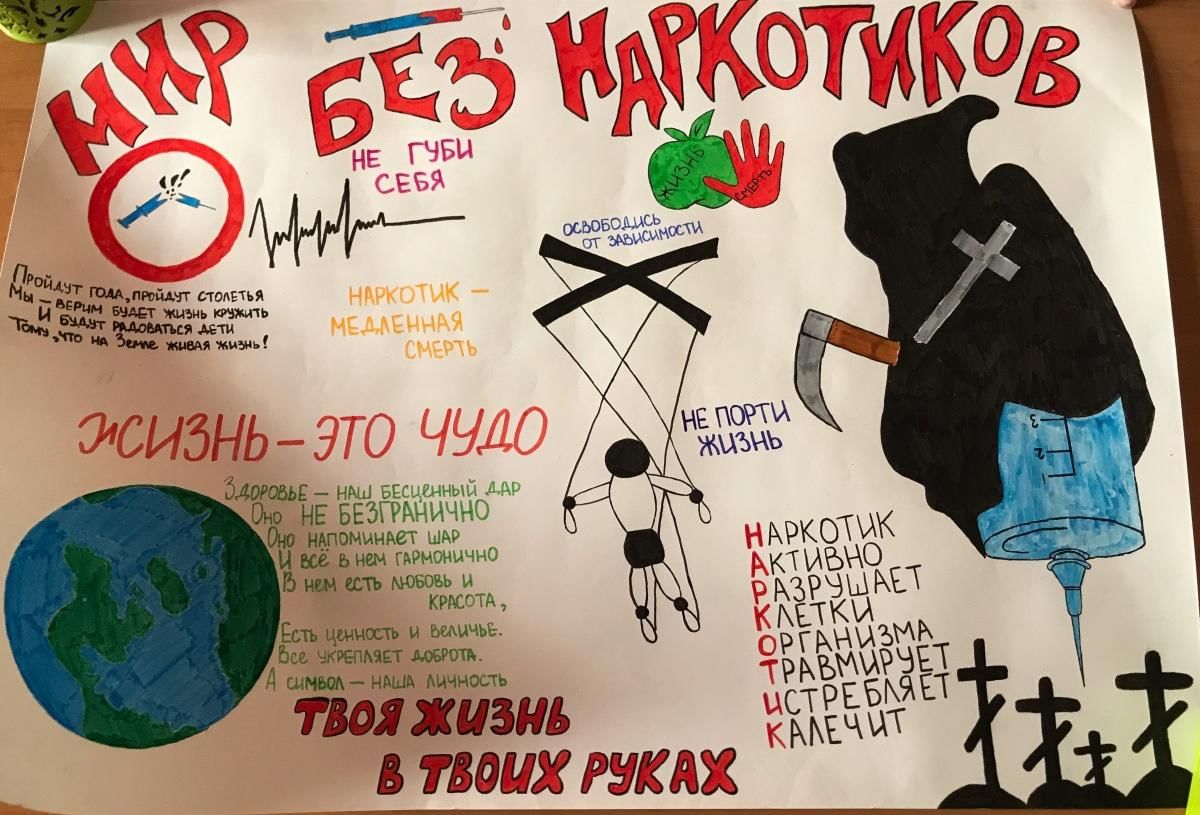 МИР БЕЗ НАРКОТИКОВ
НЕ ГУБИ
СЕБЯ
ЖИЗНЬ
СМЕРТЬ
ОСВОБОДИСЬ
ОТ ЗАВИСИМОСТИ
ПРОЙДУТ ГОДА, ПРОЙДУТ СТОЛЕТЬЯ
МЫ – ВЕРИМ БУДЕТ ЖИЗНЬ КРУЖИТЬ
И БУДУТ РАДОВАТЬСЯ ДЕТИ
ТОМУ, ЧТО НА ЗЕМЛЕ ЖИВАЯ ЖИЗНЬ!
НАРКОТИК –
МЕДЛЕННАЯ
СМЕРТЬ
НЕ ПОРТИ
ЖИЗНЬ
ЖИЗНЬ – ЭТО ЧУДО
ЗДОРОВЬЕ – НАШ БЕСЦЕННЫЙ ДАР
ОНО НЕ БЕЗГРАНИЧНО
ОНО НАПОМИНАЕТ ШАР
И ВСЁ В НЕМ ГАРМОНИЧНО
В НЕМ ЕСТЬ ЛЮБОВЬ И
КРАСОТА,
ЕСТЬ ЦЕННОСТЬ И ВЕЛИЧЬЕ.
ВСЕ УКРЕПЛЯЕТ ДОБРОТА.
А СИМВОЛ – НАША ЛИЧНОСТЬ
3
2
1
НАРКОТИК
АКТИВНО
РАЗРУШАЕТ
КЛЕТКИ
ОРГАНИЗМА
ТРАВМИРУЕТ
ИСТРЕБЛЯЕТ
КАЛЕЧИТ
ТВОЯ ЖИЗНЬ
В ТВОИХ РУКАХ